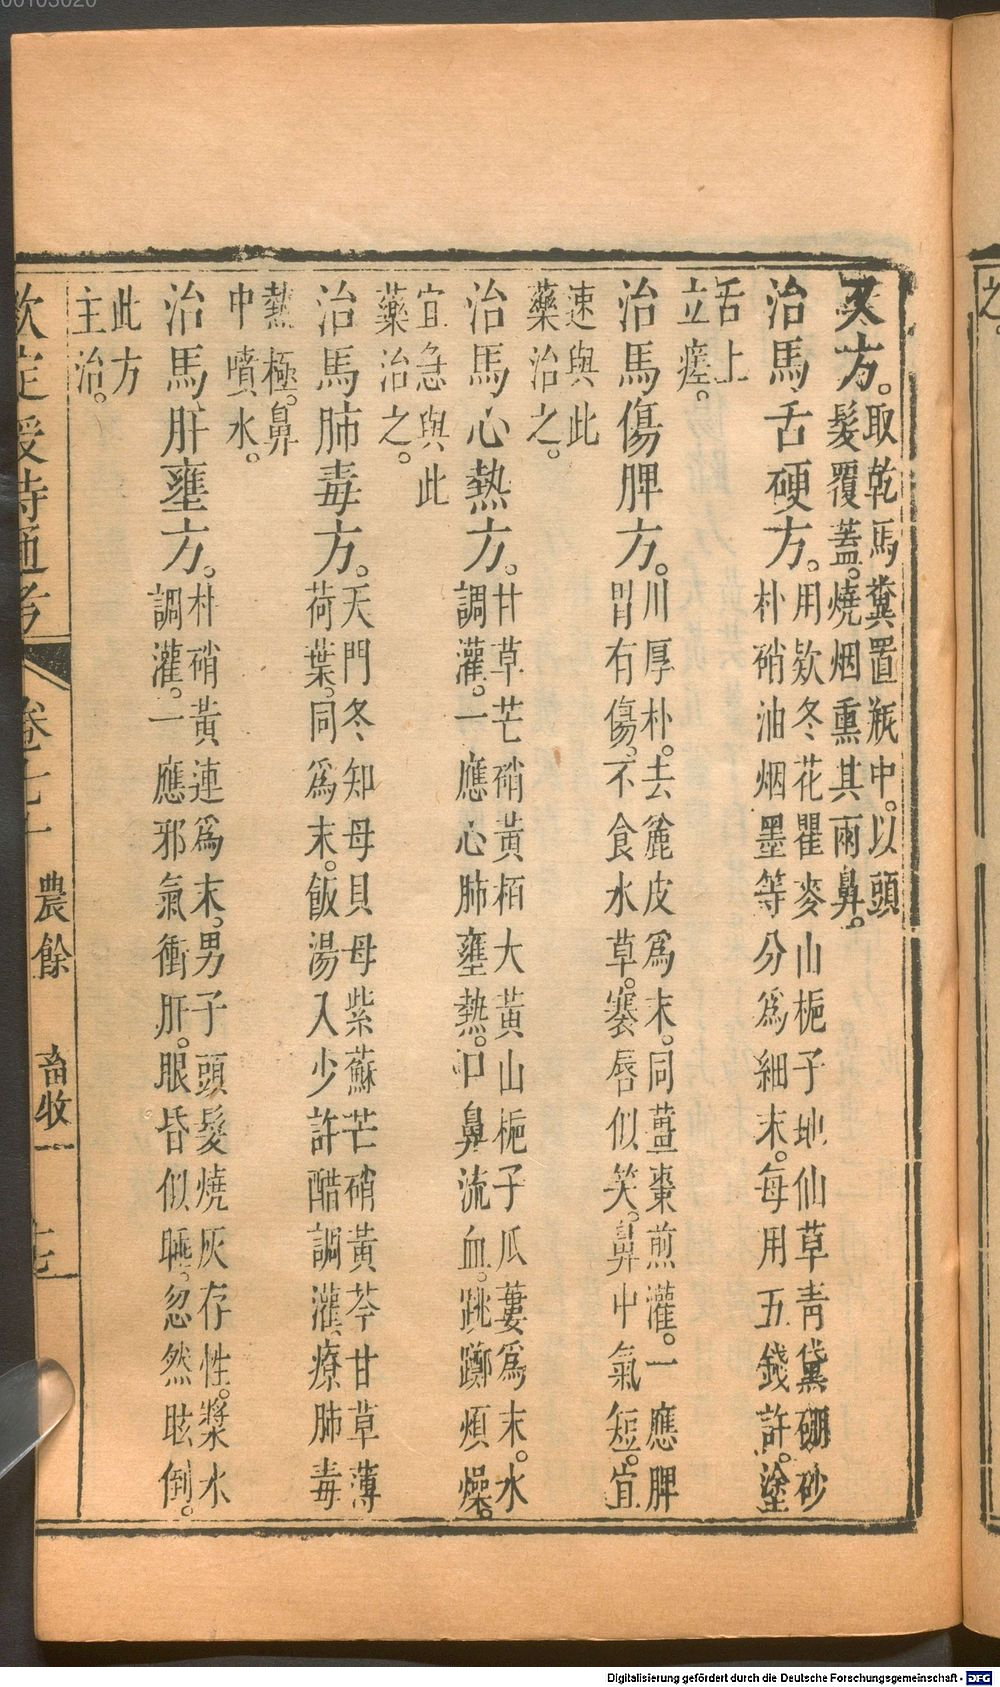 又方。取乾馬糞置瓶中。以頭
髮覆蓋。燒烟熏其兩鼻。
治馬舌硬方。用欵冬花瞿麥山梔子地仙草青黛硼砂
朴硝油烟墨等分為細末。每用五錢許。塗
舌上
立瘥。
治馬傷脾方。川厚朴。去麄皮為末。同薑棗煎灌。一應脾
胃有傷。不食水草。褰唇似笑。鼻中氣短。宜
速與此
藥治之。
治馬心熱方。甘草芒硝黃栢大黃山梔子瓜蔞為末。水
調灌。一應心肺壅熱。口鼻流血。跳躑煩燥。
宜急與此
藥治之。
治馬肺毒方。天門冬知母貝母紫蘇芒硝黃芩甘草薄
荷葉。同為末。飯湯入少許醋調灌、療肺毒
熱極。鼻
中噴水。
治馬肝壅方。朴硝黃連為末。男子頭髮燒灰存性。漿水
調灌。一應邪氣衝肝。眼昏似睡。忽然眩倒。
此方
主治。
欽定授時通考 卷七十一 農餘 畜牧一 七
之。
00103020
Digitalisierung gefördert durch die Deutsche Forschungsgemeinschaft - DFG